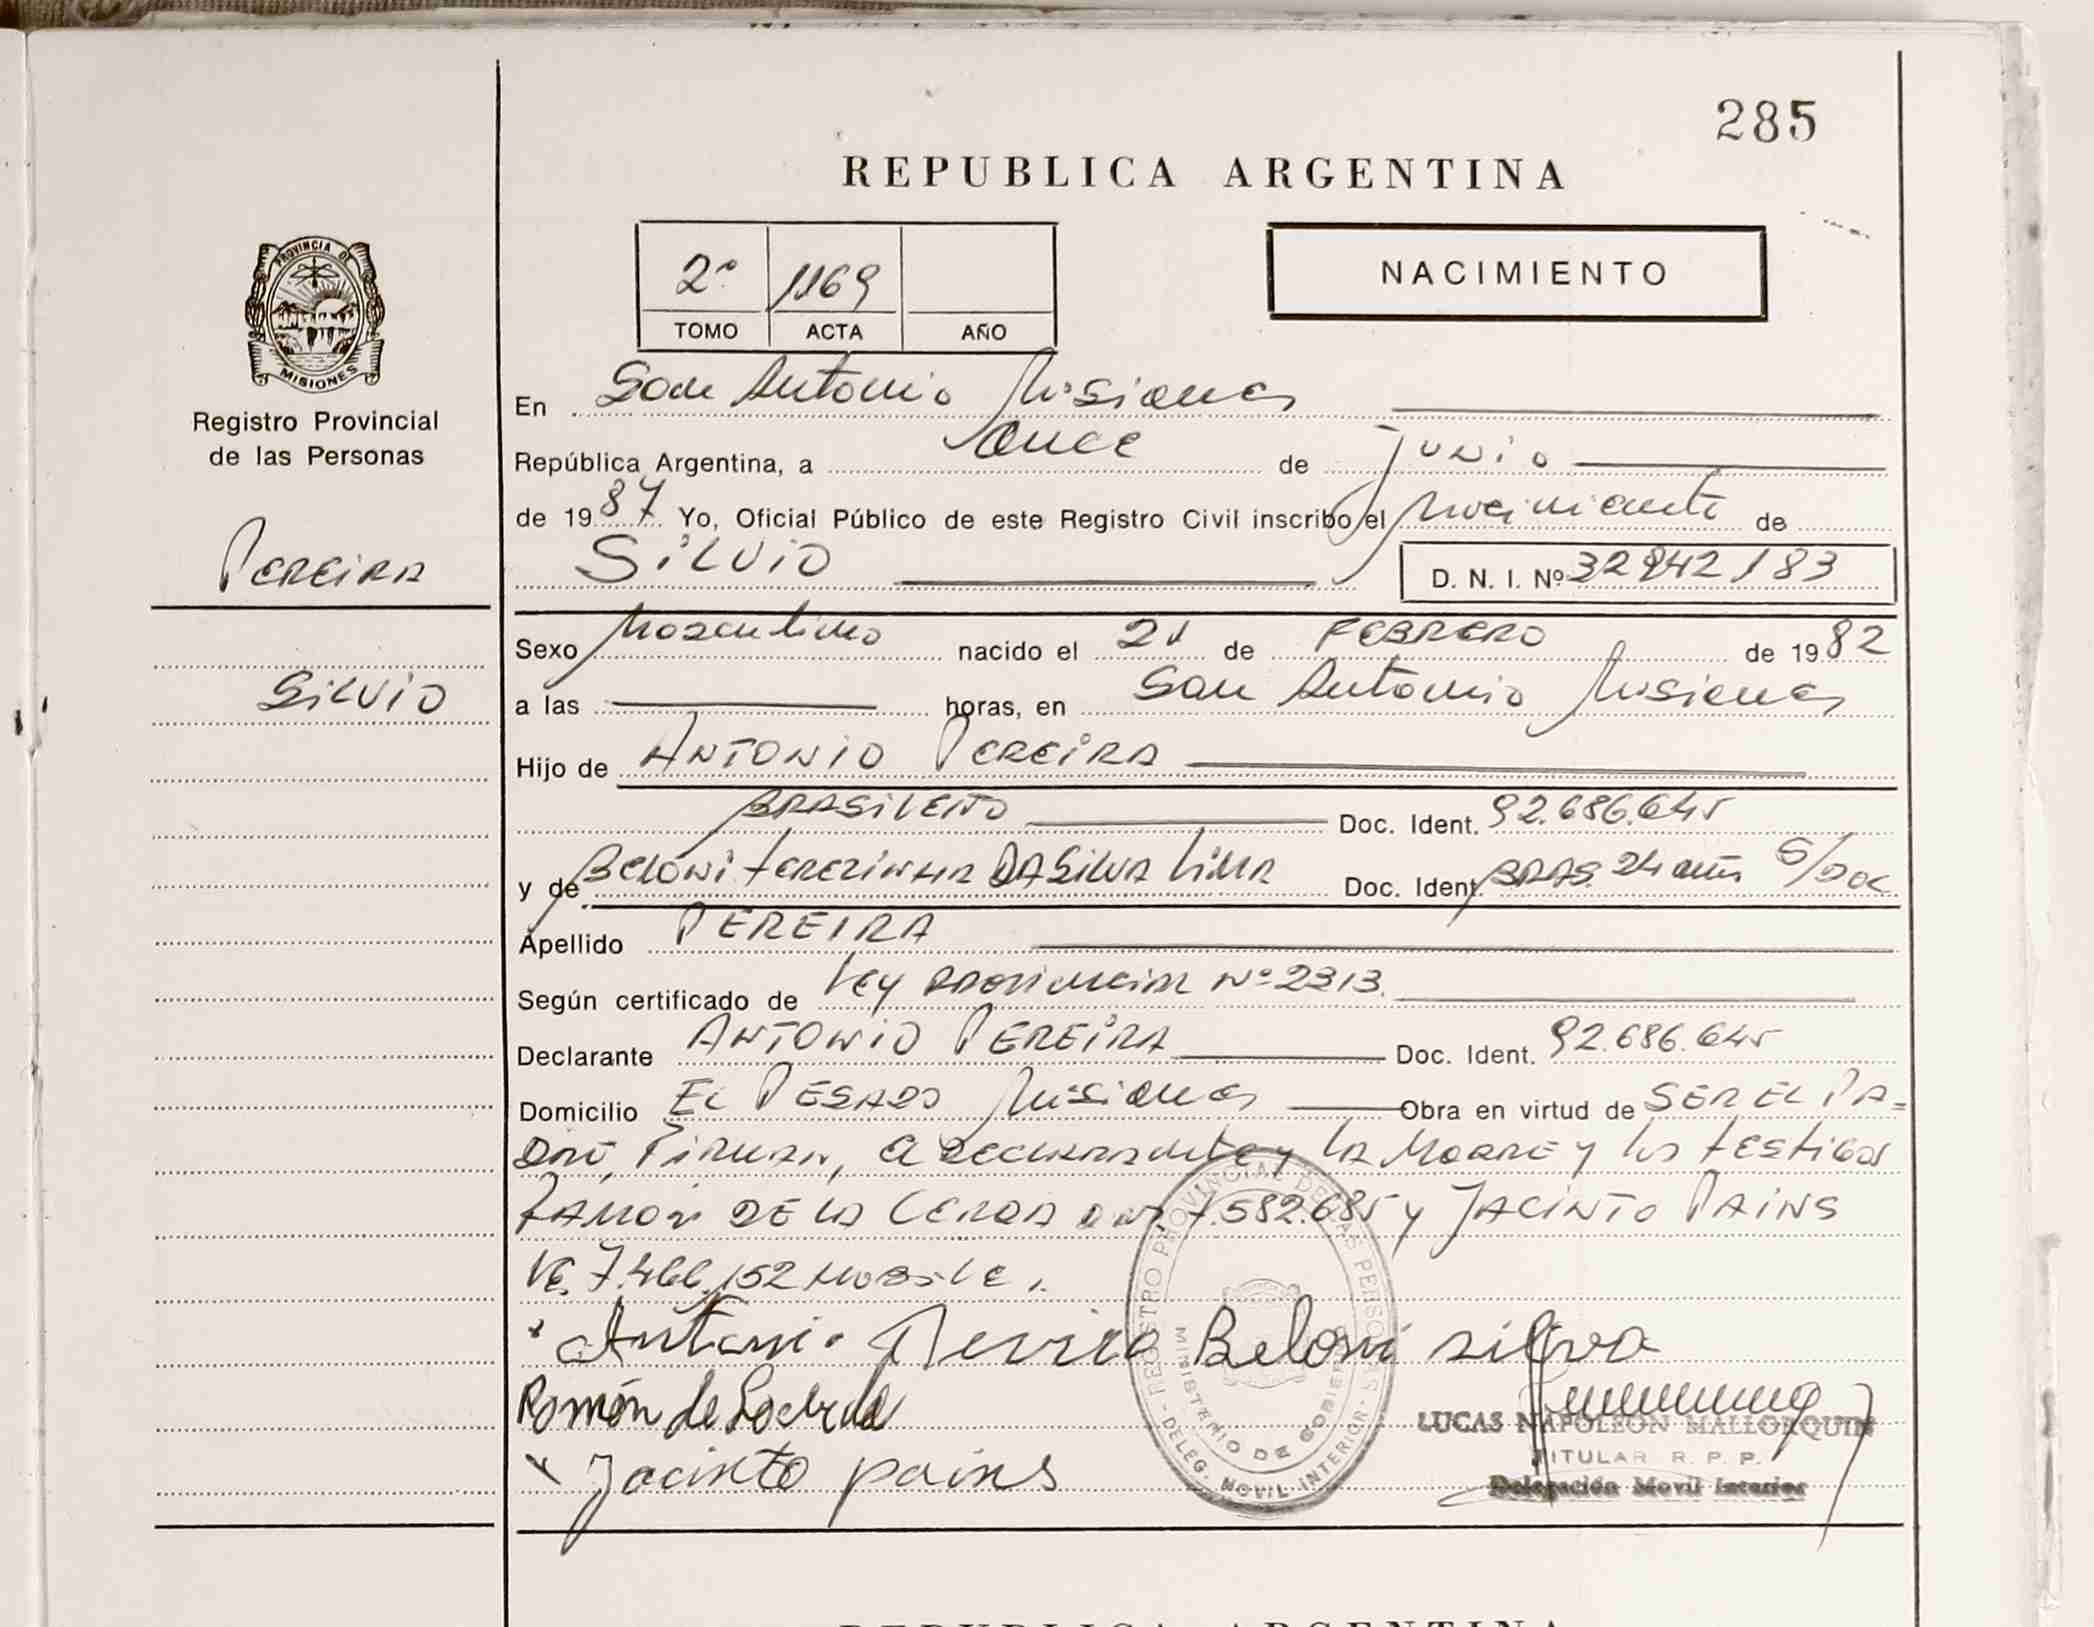 285
REPUBLICA ARGENTINA
2º 1169
TOMO ACTA AÑO
NACIMIENTO
PROVINCIA DE
MISIONES
Registro Provincial
de las Personas
Pereira
Silvio
En San Antonio Misiones
República Argentina, a once de junio
de 1987 Yo, Oficial Público de este Registro Civil inscribo el nacimiento de
Silvio D. N. I. Nº 32942183
Sexo Masculino nacido el 21 de FEBRERO de 1982
a las horas, en San Antonio Misiones
Hijo de ANTONIO PEREIRA
BRASILEÑO Doc. Ident. 92.686.645
y de Beloni Terezinha DA Silva Lima Doc. Ident. BRAS. 24 años S/Doc
Apellido PEREIRA
Según certificado de Ley provincial Nº 2313
Declarante ANTONIO PEREIRA Doc. Ident. 92.686.645
Domicilio EL PESADO Misiones Obra en virtud de SER EL PA=
DRE, Firman, el declarante y la Madre y los testigos
RAMON DE LA CERDA DNI 7.582.685 y JACINTO PAINS
LE. 7.466.152
Antonio Pereira Beloni silva
Ramón de
Jacinto pains
REGISTRO PROVINCIAL DE LAS PERSONAS
MINISTERIO DE GOBIERNO
- DELEG. MOVIL INTERIOR -
LUCAS NAPOLEON MALLORQUIN
TITULAR R. P. P.
Delegación Movil Interior
REPUBLICA ARGENTINA